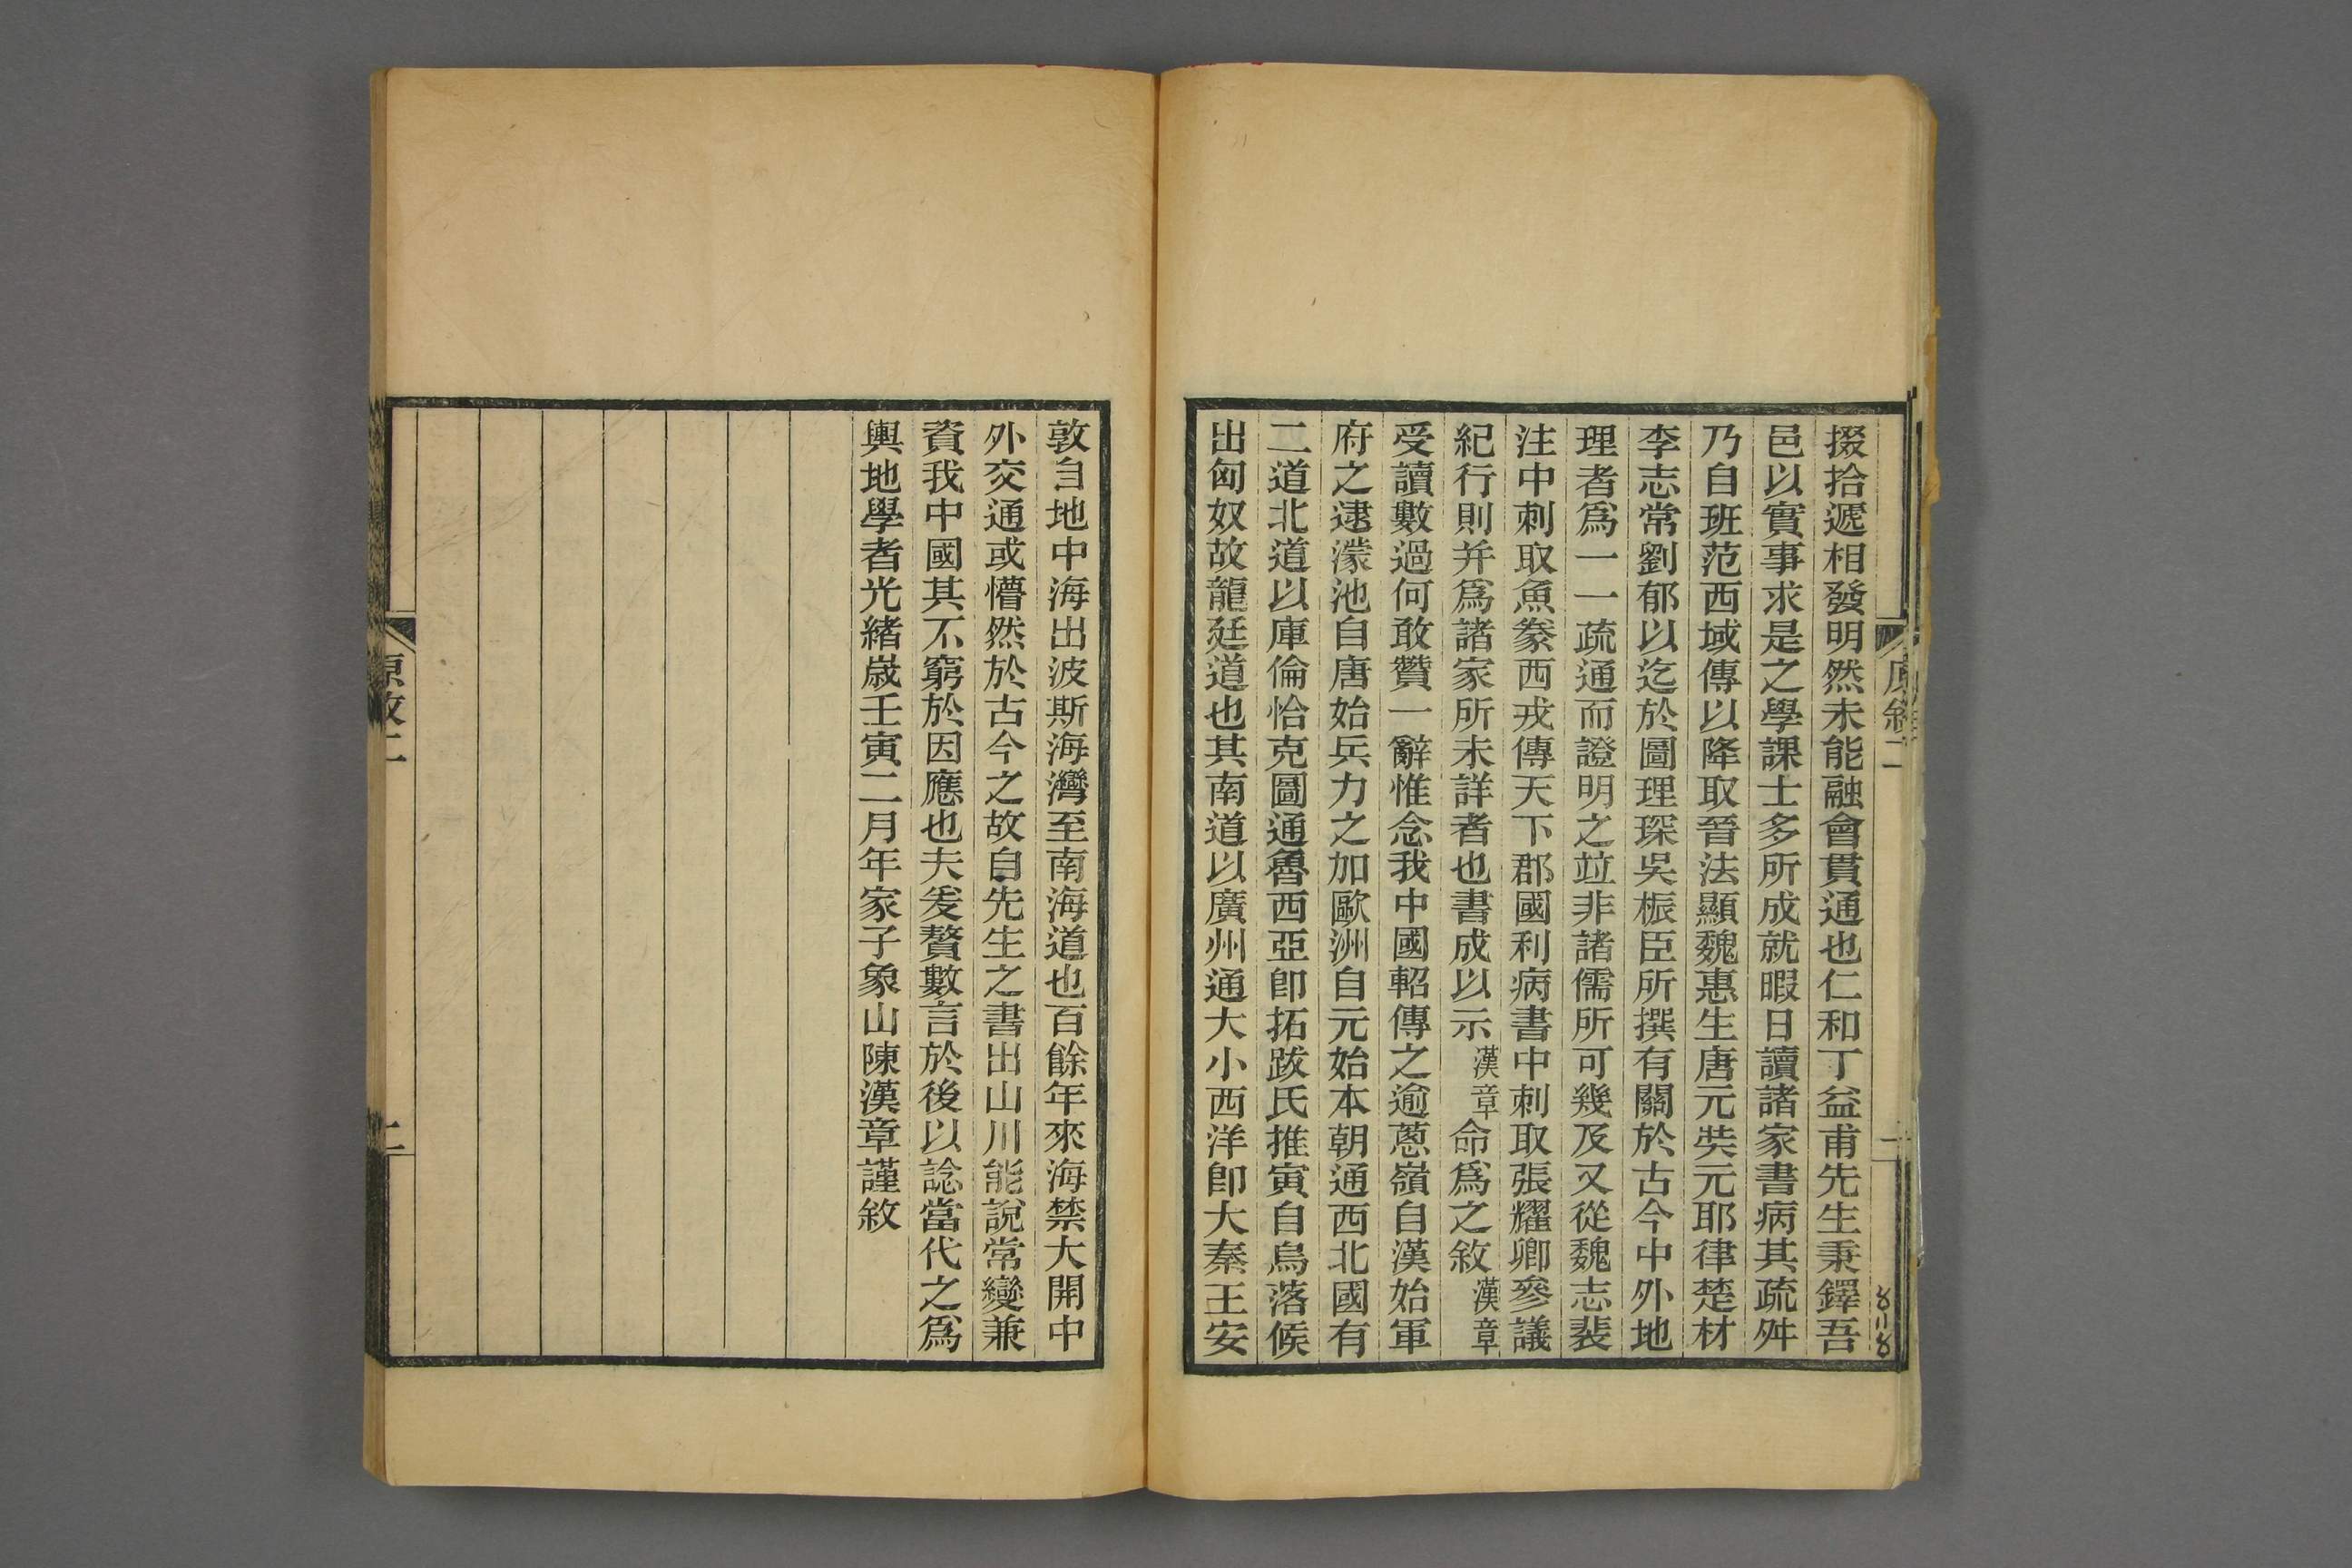 掇拾遞相發明然未能融會貫通也仁和丁益甫先生秉鐸吾
邑以實事求是之學課士多所成就暇日讀諸家書病其疏舛
乃自班范西域傳以降取晉法顯魏惠生唐元奘元耶律楚材
李志常劉郁以迄於圖理琛吳桭臣所撰有關於古今中外地
理者爲一一疏通而證明之竝非諸儒所可幾及又從魏志裴
注中刺取魚豢西戎傳天下郡國利病書中刺取張耀卿參議
紀行則并爲諸家所未詳者也書成以示漢章命爲之敘漢章
受讀數過何敢贊一辭惟念我中國軺傳之逾蔥嶺自漢始軍
府之逮濛池自唐始兵力之加歐洲自元始本朝通西北國有
二道北道以庫倫恰克圖通魯西亞卽拓跋氏推寅自烏落候
出匈奴故龍廷道也其南道以廣州通大小西洋卽大秦王安
敦自地中海出波斯海灣至南海道也百餘年來海禁大開中
外交通或懵然於古今之故自先生之書出山川能說常變兼
資我中國其不窮於因應也夫爰贅數言於後以諗當代之爲
輿地學者光緒歲壬寅二月年家子象山陳漢章謹敘
原敘二
二